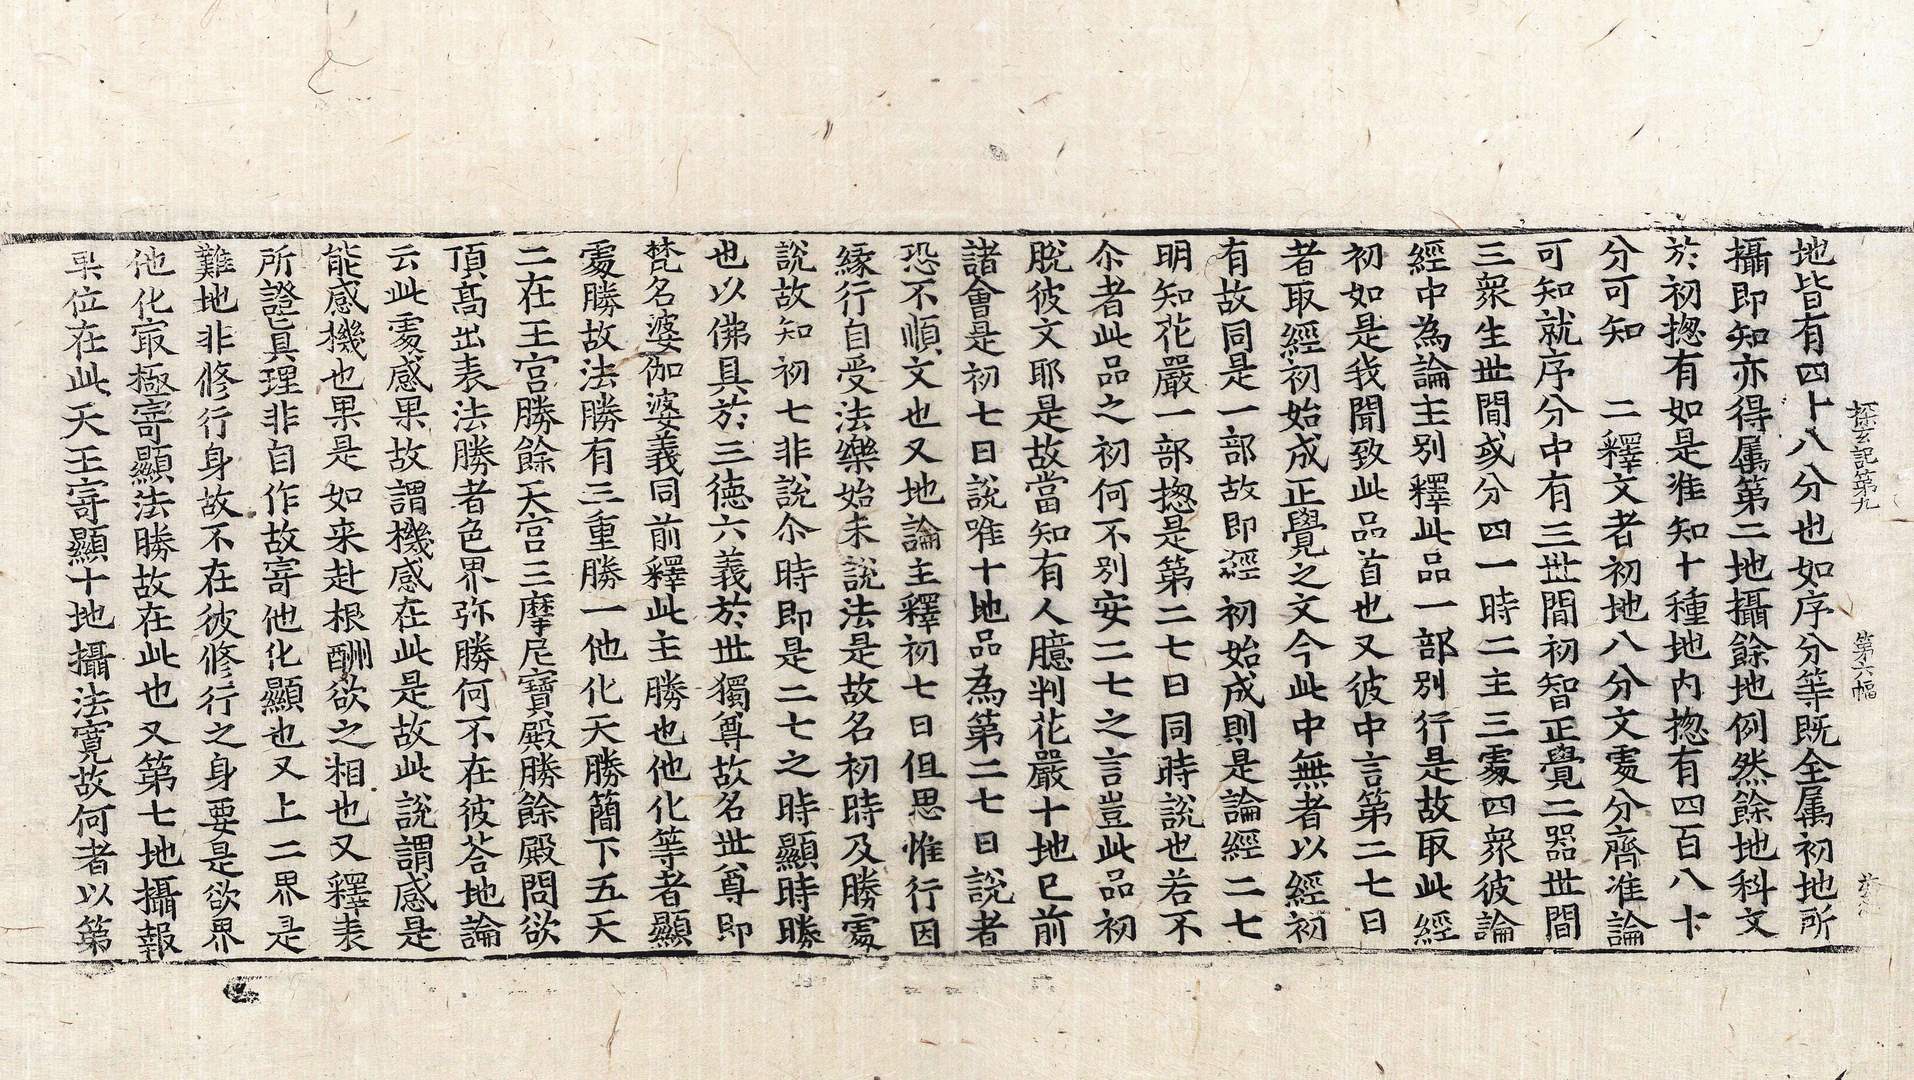 探玄記第九　第六幅
地皆有四十八分也如序分等既全属初地所
攝即知亦得属第二地攝餘地例然餘地科文
於初揔有如是准知十種地内揔有四百八十
分可知　二釋文者初地八分文處分齊准論
可知就序分中有三世間初智正覺二器世間
三衆生世間或分四一時二主三處四衆彼論
經中為論主別釋此品一部別行是故取此經
初如是我聞致此品首也又彼中言第二七日
者取經初始成正覺之文今此中無者以經初
有故同是一部故即經初始成則是論經二七
明知花嚴一部揔是第二七日同時說也若不
尒者此品之初何不別安二七之言豈此品初
脫彼文耶是故當知有人臆判花嚴十地已前
諸會是初七日說唯十地品為第二七日說者
恐不順文也又地論主釋初七日但思惟行因
縁行自受法樂始未說法是故名初時及勝處
說故知初七非說尒時即是二七之時顯時勝
也以佛具於三徳六義於世獨尊故名世尊即
梵名婆伽婆義同前釋此主勝也他化等者顯
處勝故法勝有三重勝一他化天勝簡下五天
二在王宮勝餘天宮三摩尼寶殿勝餘殿問欲
頂髙出表法勝者色界弥勝何不在彼荅地論
云此處感果故謂機感在此是故此說謂感是
能感機也果是如来赴根酬欲之相也又釋表
所證真理非自作故寄他化顯也又上二界是
難地非修行身故不在彼修行之身要是欲界
他化㝡極寄顯法勝故在此也又第七地攝報
果位在此天王寄顯十地攝法寛故何者以第